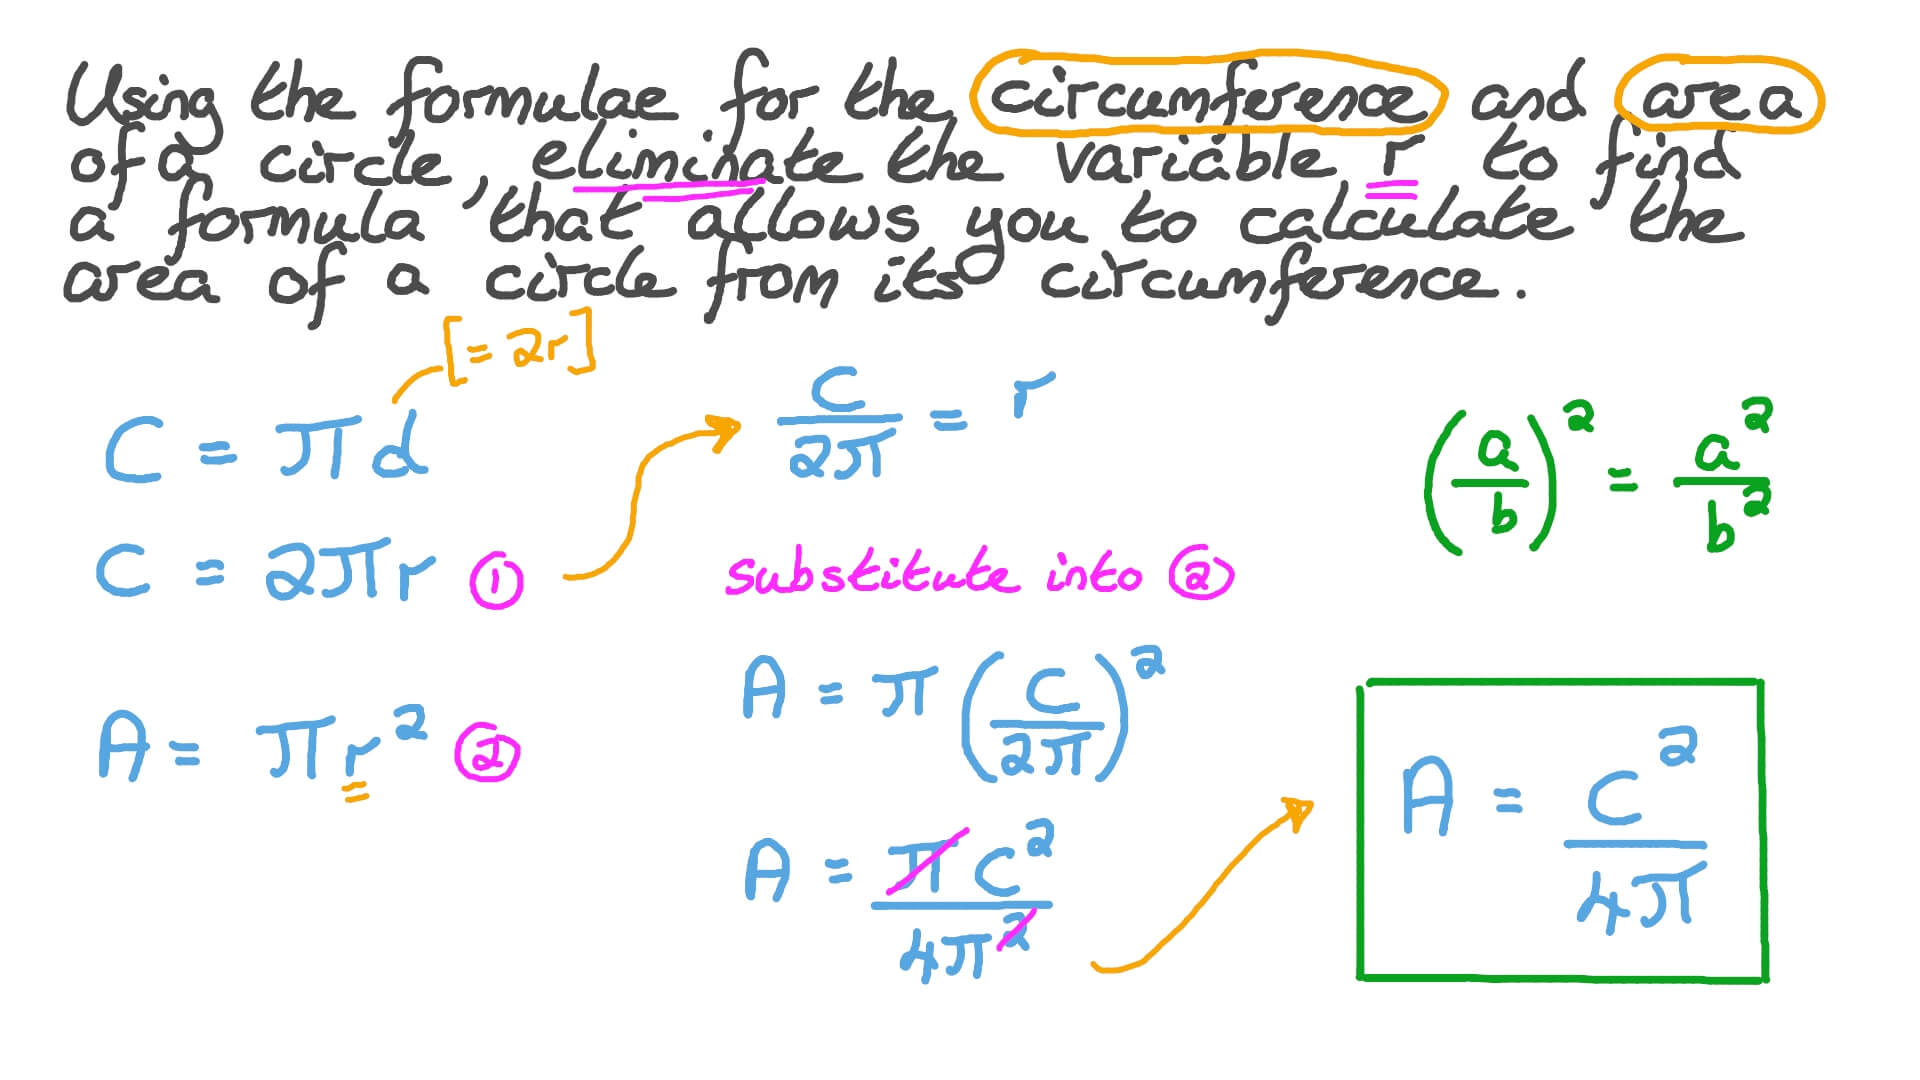 Using the formulae for the circumference and area
of a circle, eliminate the variable r to find
a formula that allows you to calculate the
area of a circle from its circumference.
[= 2r]
C = πd
C = 2πr ①
A = πr² ②
C/2π = r
substitute into ②
A = π(C/2π)²
A = πC²/4π²
(a/b)² = a²/b²
A = C²/4π